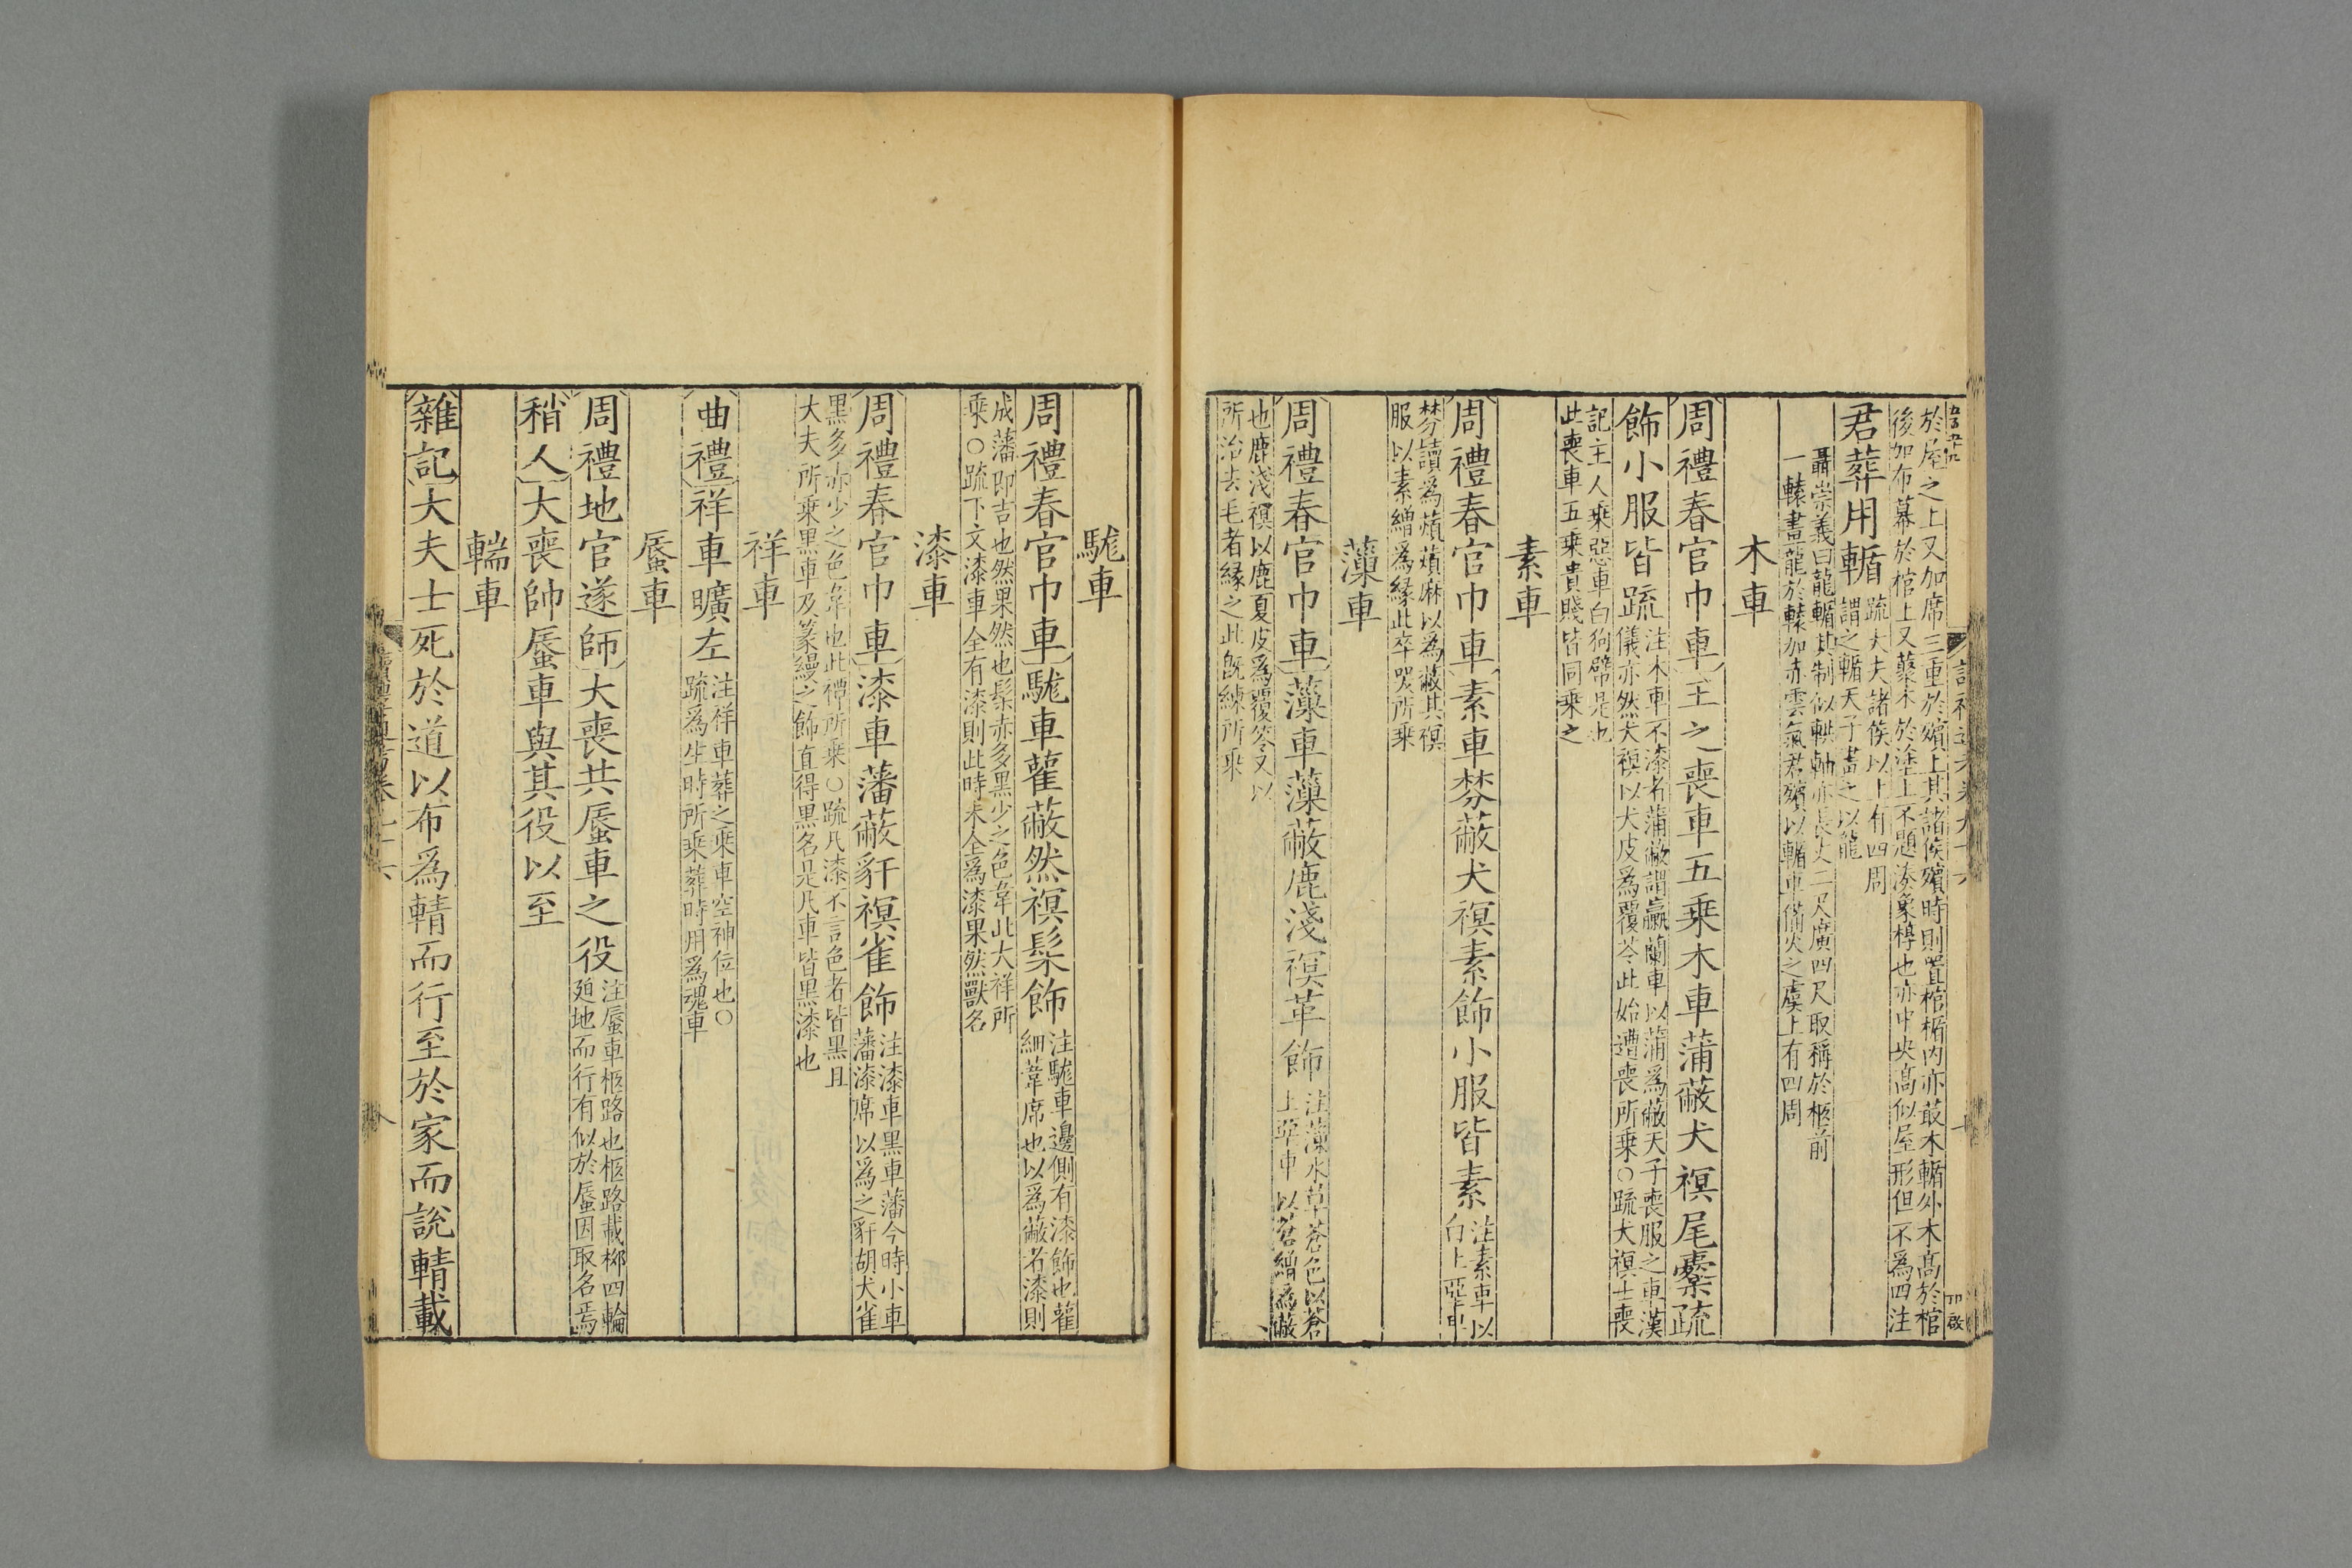 於屋之上又加席三重於殯上其諸侯殯時則置棺輴內亦菆木輴外木高於棺
後加布幕於棺上又菆木於塗上不題湊象椁也亦中央高似屋形但不為四注
君葬用輴
疏大夫諸侯以上有四周
謂之輴天子畫之以龍
聶崇義曰龍輴其制似輁軸亦長丈二尺廣四尺取稱於柩前
一轅畫龍於轅加赤雲氣君殯以輴車備火之虞上有四周
木車
周禮春官巾車王之喪車五乗木車蒲蔽犬䙪尾櫜疏
飾小服皆疏
注木車不漆者蒲蔽謂臝蘭車以蒲爲蔽天子喪服之車漢
儀亦然犬䙪以犬皮爲覆笭此始遭喪所乗○疏犬䙪士喪
記主人乗惡車白狗幦是也
此喪車五乗貴賤皆同乗之
素車
周禮春官巾車素車棼蔽犬䙪素飾小服皆素
注素車以
白土堊車
棼讀爲薠薠麻以為蔽其䙪
服以素繒爲緣此卒哭所乗
薻車
周禮春官巾車薻車薻蔽鹿淺䙪革飾
注薻水草蒼色以蒼
土堊車以蒼繒爲蔽
也鹿淺䙪以鹿夏皮爲覆笭又以
所治去毛者緣之此旣練所乗
駹車
周禮春官巾車駹車雚蔽然䙪髤飾
注駹車邊側有漆飾也雚
細葦席也以爲蔽者漆則
成藩即吉也然果然也髤赤多黑少之色韋此大祥所
乗○疏下文漆車全有漆則此時未全爲漆果然獸名
漆車
周禮春官巾車漆車藩蔽豻䙪雀飾
注漆車黑車藩今時小車
藩漆席以爲之豻胡犬雀
黑多赤少之色韋也此禫所乗○疏凡漆不言色者皆黑且
大夫所乗黑車及篆縵之飾直得黑名是凡車皆黑漆也
祥車
曲禮祥車曠左
注祥車葬之乗車空神位也○
疏爲生時所乗葬時用爲魂車
蜃車
周禮地官遂師大喪共蜃車之役
注蜃車柩路也柩路載桺四輪
廹地而行有似於蜃因取名焉
稍人大喪帥蜃車與其役以至
輲車
雜記大夫士死於道以布爲輤而行至於家而說輤載